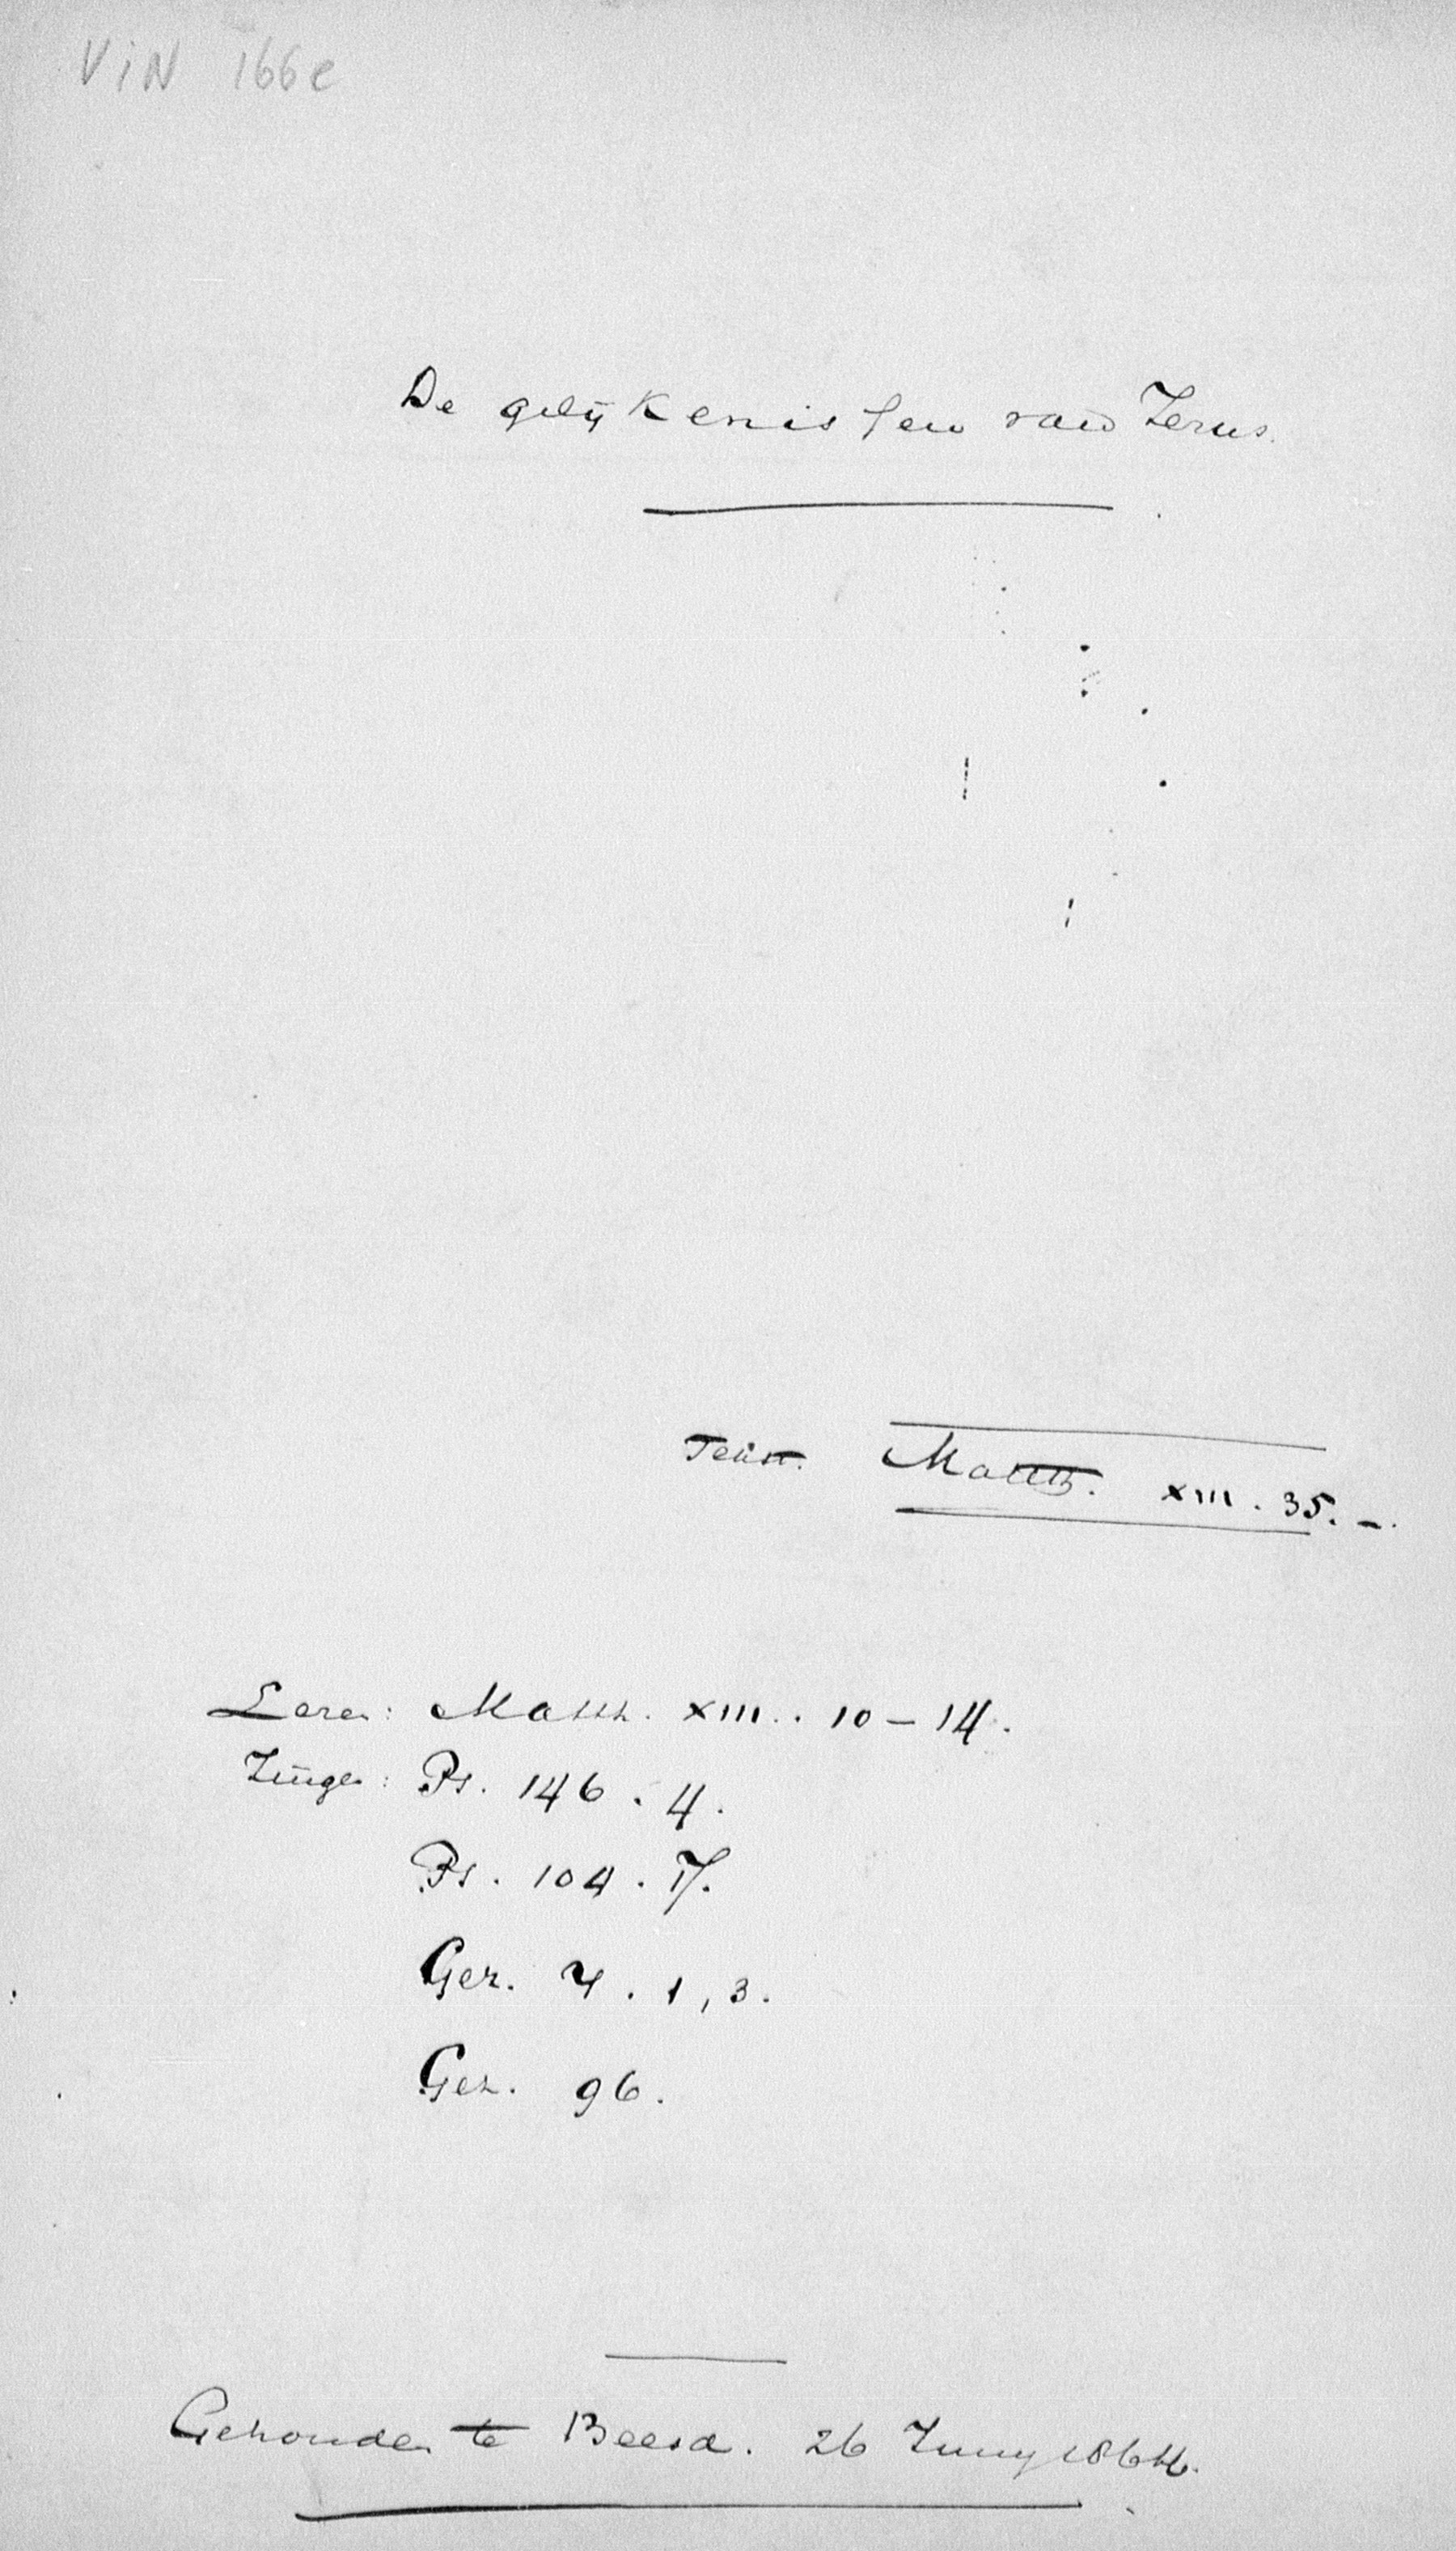 ViN 166e
De gelijkenissen van Jezus.
Tekst. Matth. XIII. 35. -
Lezen: Matth. XIII. 10-14.
Zingen: Ps. 146. 4.
Ps. 104. 17.
Gez. 7. 1, 3.
Gez. 96.
Gehouden te Beesd. 26 Juny 1864.